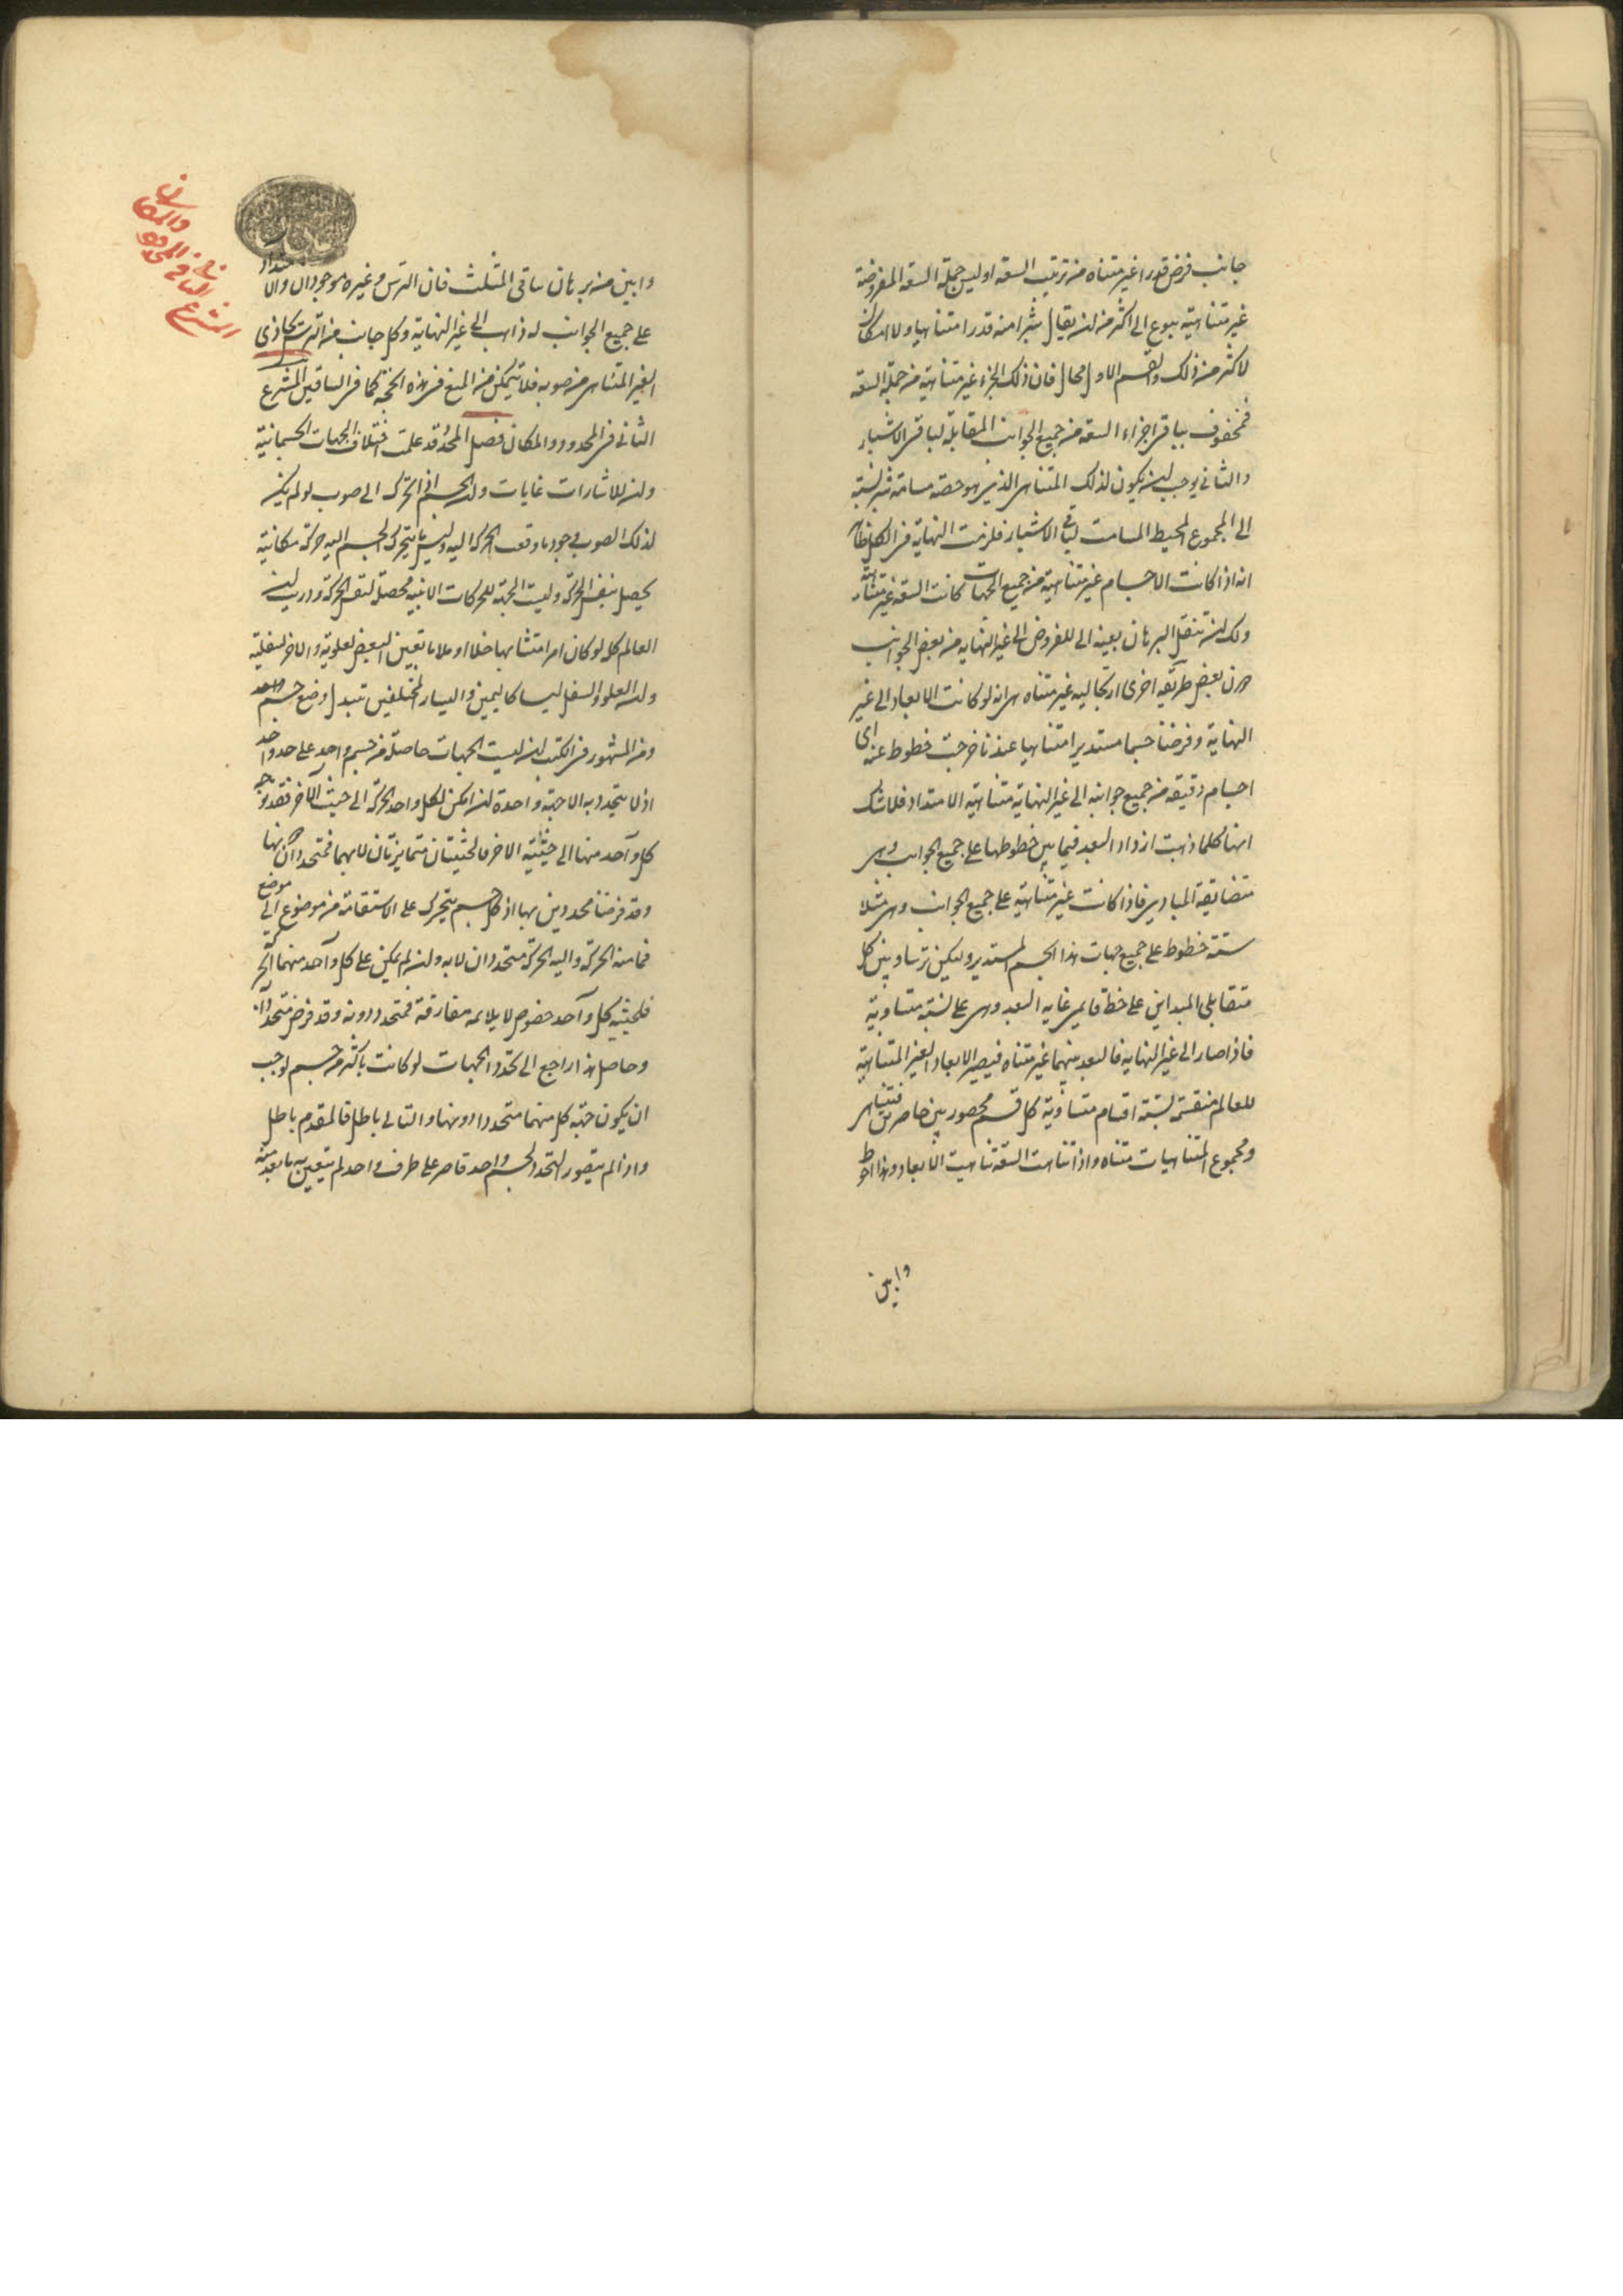 جانب فرض قدرا غير متناه من ترتيب السعة اوليس جملة السعة المفروضة
غير متناهية ببوع الى اكثر من ان يقال شبرا منه قدرا متناهيا ولا امكان
لاكثر من ذلك والقسم الاول محال فان ذلك الجزء غير متناهية من جملة السعة
فمحفوف بباقى اجزاء السعة من جميع الجوانب المقابلة لباقى الاشبار
والثانى يوجب ان يكون لذلك المتناهى الذى هو حصة مسامتة شبر نسبة
الى المجموع المحيط المسامت لباقى الاشبار فلزمت النهاية فى الكل
انه اذا كانت الاجسام غير متناهية من جميع الجهات كانت السعة غير متناهية
ولك ان تنقل البرهان بعينه الى المفروض الى غير النهاية من بعض الجوانب
دون بعض طريقة اخرى ارتجالية غير متناه هى انه لو كانت الابعاد الى غير
النهاية وفرضنا جسما مستديرا متناهيا عندنا خرجت خطوط عنه اى
اجسام دقيقة من جميع جوانبه الى غير النهاية متناهية الامتداد فلا شك
انها كلما ذهبت ازداد البعد فيما بين خطوطها على جميع الجوانب وهى
متضايقة المبادى فاذا كانت غير متناهية على جميع الجوانب وهى مثلا
ستة خطوط على جميع جهات هذا الجسم المستدير وليكن تساوى بين كل
متقابلى المبداين على خط قايم غاية البعد وهى على نسبة متساوية
فاذا صار الى غير النهاية فالبعد بينهما غير متناه فيصير الابعاد الغير المتناهية
للعالم منقسمة بستة اقسام متساوية كل قسم محصور بين حاصرين فتناهى
ومجموع المتناهيات متناه واذا تناهت السعة تناهيت الابعاد وهذا احوط
وابين
وابين من برهان ساقى المثلث فان الترس وغيره موجودان والامتداد
على جميع الجوانب له ذاهب الى غير النهاية وكل جانب من الترس يحاذى
الغير المتناهى من صوبه فلا يتمكن من المنع فى هذه الحجة كما فى الساقين المشرع
الثانى فى المحدود والمكان فصل المحدد قد علمت اختلاف الجهات الجسمانية
وان للاشارات غايات وان الجسم اذا تحرك الى صوب لو لم يكن
لذلك الصوب وجود ما وقعت الحركة اليه وليس ما يتحرك الجسم اليه حركة مكانية
يحصل بنفس الحركة وليست الجهة للحركات الاينية محصلة لنفس الحركة ودريت ان
العالم كله لو كان امرا متشابها خلاء او ملاء ما تعين البعض لعلوية والاخر لسفلية
وان العلو والسفل ليسا كاليمين واليسار المختلفين بتبدل وضع جسم واحد
ومن المشهور فى الكتب ان ليست الجهات حاصلة من جسم واحد على حد واحد
اذ لا يتحدد به الا جهة واحدة ان امكن لكل واحد الحركة الى حيث الاخر فقد توجه
كل واحد منها الى حيثية الاخر فالحيثيتان متمايزتان لا بهما فمتحددان دونها
وقد فرضنا محددين بها اذ كل جسم يتحرك على الاستقامة من موضوع الى موضع
فما منه الحركة واليه الحركة متحددان لا به وان لم يمكن على كل واحد منهما الحركة
فلحيثية كل واحد خصوص لا يلائمه مفارقة فمتحدد دونه وقد فرض متحددان
وحاصل هذا راجع الى تحدد الجهات لو كانت باكثر من جسم لوجب
ان يكون جهة كل منهما متحددا دونها والتالى باطل فالمقدم باطل
واذا لم يتصور التحدد لجسم واحد قاصر على طرف واحد لم يتعين به ما بعد منه
المشرع
الثانى فى
المحدود
والمكان